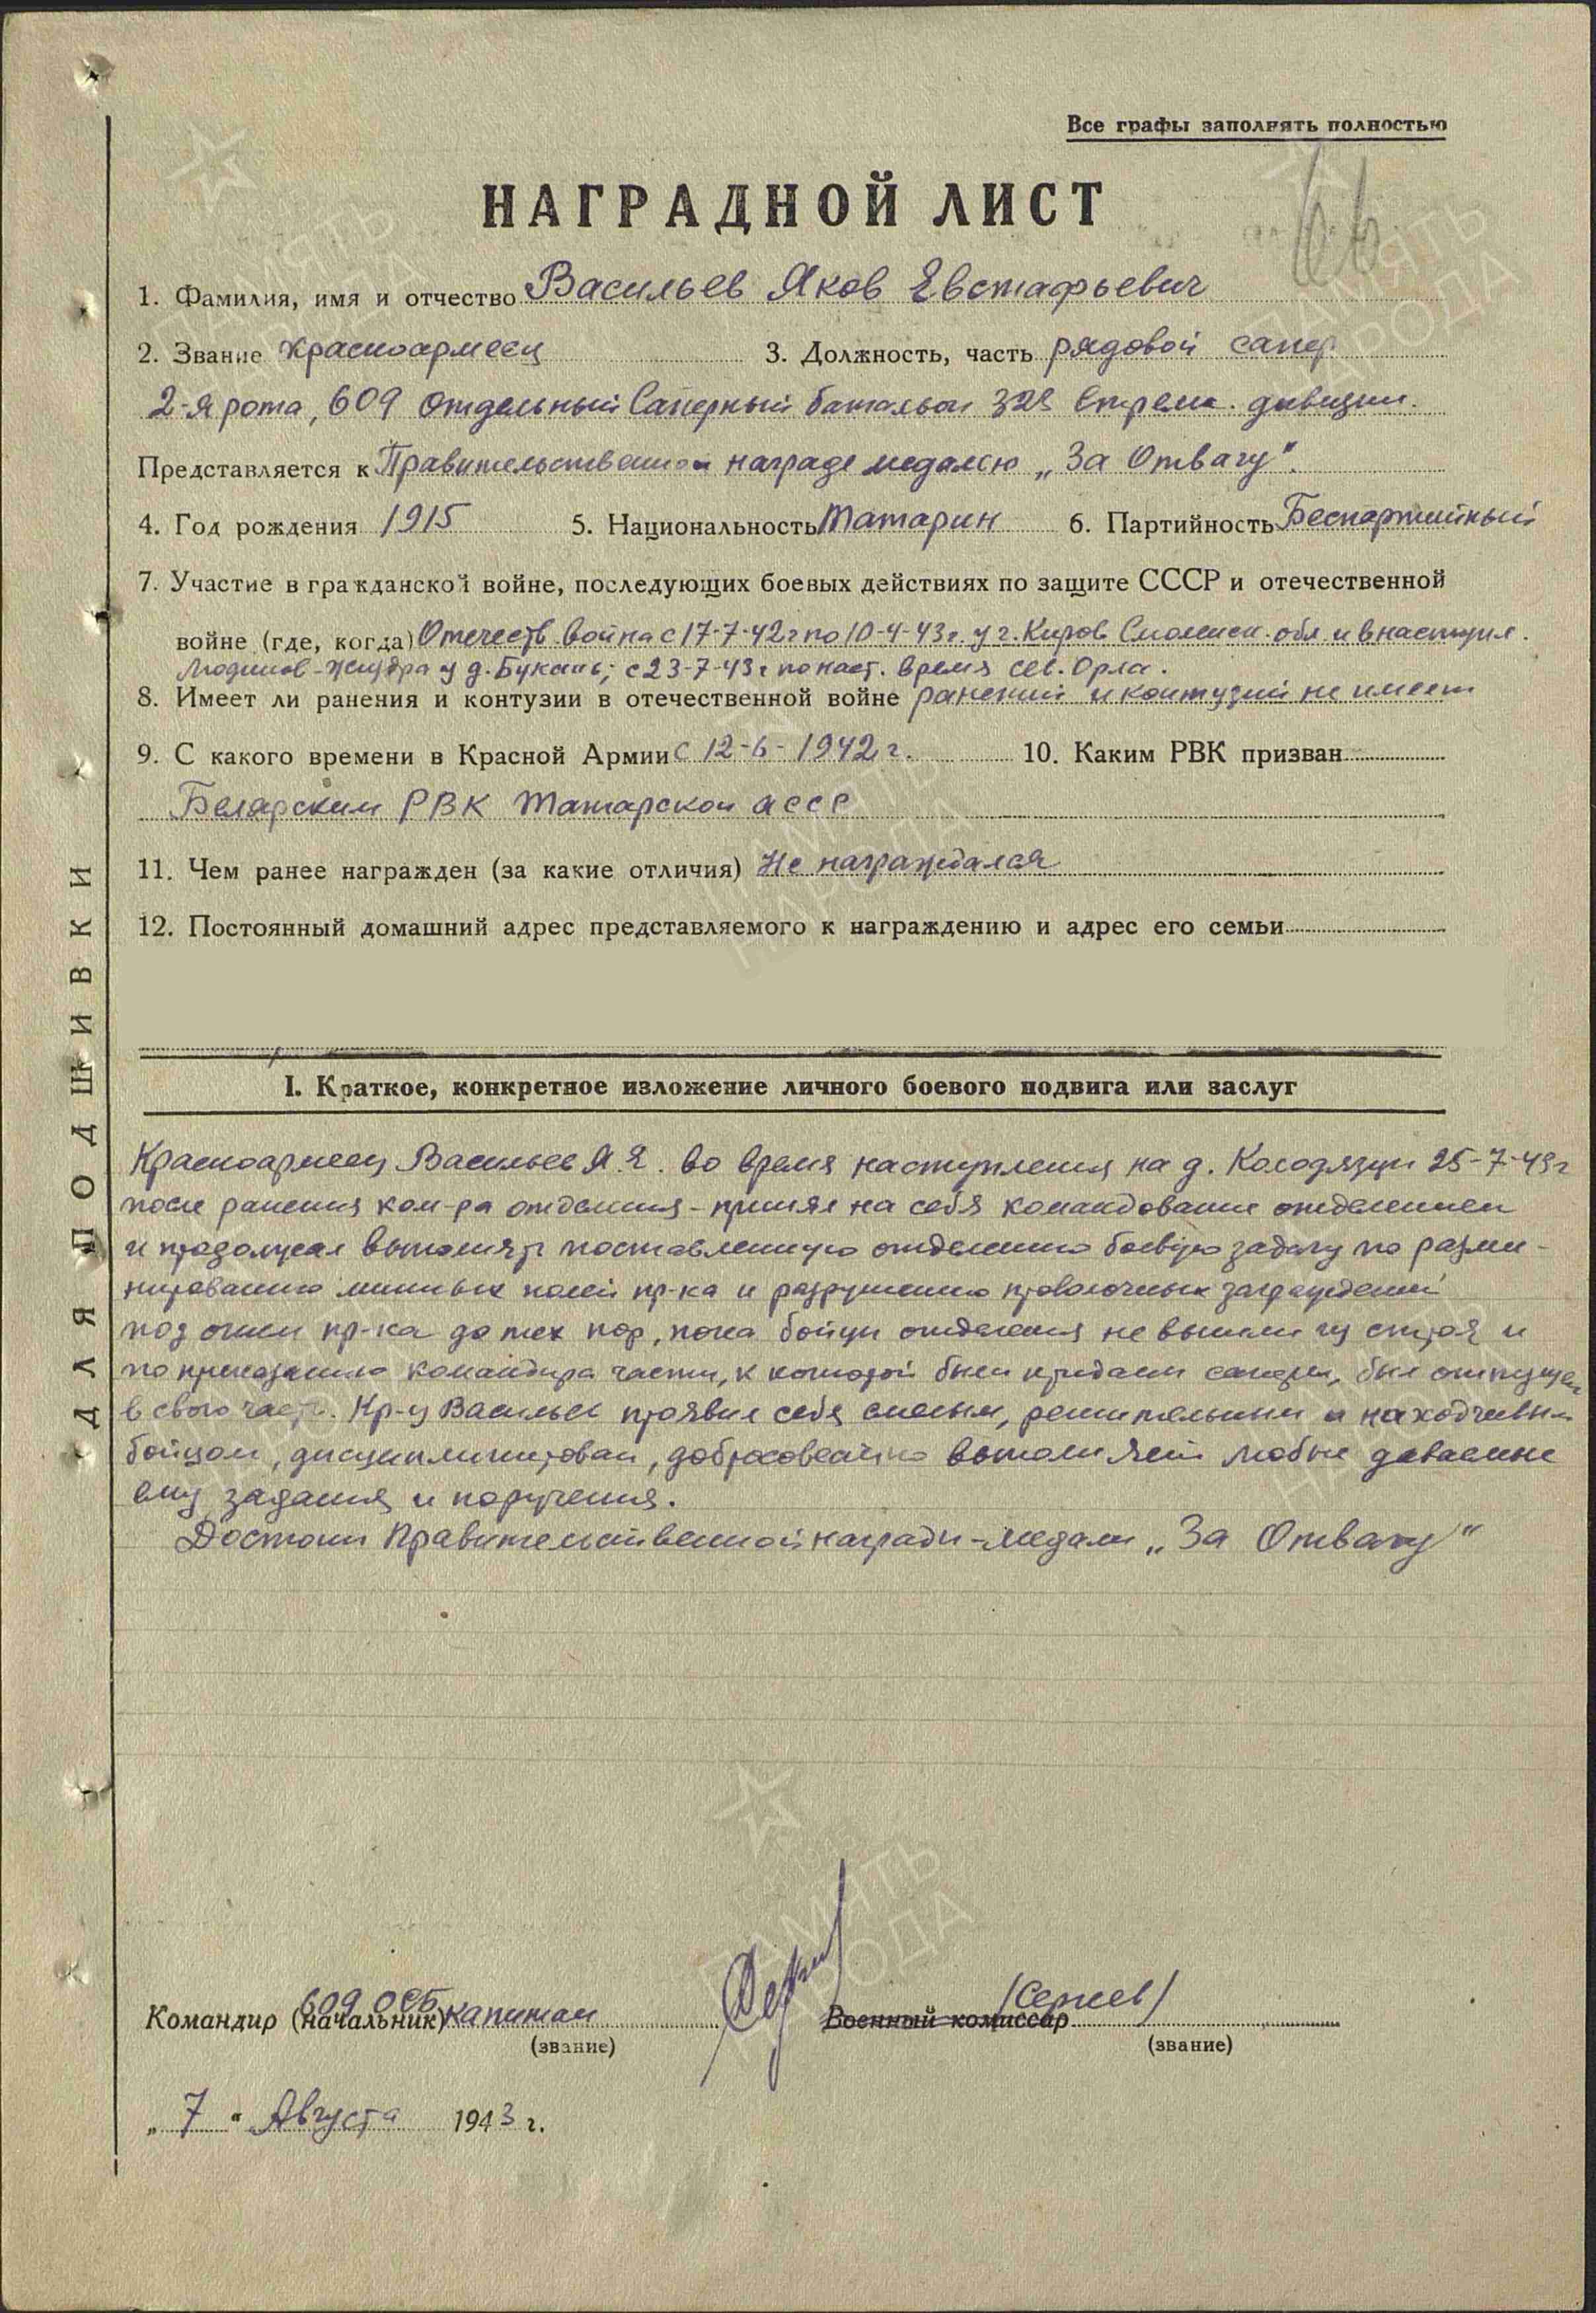 Все графы заполнять полностью
НАГРАДНОЙ ЛИСТ
1. Фамилия, имя и отчество Васильев Яков Евстафьевич
2. Звание Красноармеец 3. Должность, часть рядовой сапер
2-я рота, 609 отдельный Саперный батальон стрелк. дивизии.
Представляется к Правительственной награде медалью „За Отвагу".
4. Год рождения 1915 5. Национальность Татарин 6. Партийность Беспартийный
7. Участие в гражданской войне, последующих боевых действиях по защите СССР и отечественной
войне (где, когда) Отечеств. война с 17-7-42 г по 10-4-43 г. у г. Киров Смоленск. обл и в наступл.
Людинов-Жиздра у д. Букань; с 23-7-43 г по наст. время сев. Орла.
8. Имеет ли ранения и контузии в отечественной войне ранений и контузий не имеет
9. С какого времени в Красной Армии с 12-6-1942 г. 10. Каким РВК призван
РВК Татарской АССР
11. Чем ранее награжден (за какие отличия) Не награждался
12. Постоянный домашний адрес представляемого к награждению и адрес его семьи
I. Краткое, конкретное изложение личного боевого подвига или заслуг
Красноармеец Васильев Я.Е. во время наступления на д. Колодязци 25-7-43 г
после ранения ком-ра отделения - принял на себя командование отделением
и продолжал выполнять поставленную отделению боевую задачу по разми-
нированию минных полей пр-ка и разрушению проволочных заграждений
под огнем пр-ка до тех пор, пока бойцы отделения не вышли из строя и
по приказанию командира части, к которой были приданы саперы, был отпущен
в свою часть. Кр-ц Васильев проявил себя смелым, решительным и находчивым
бойцом, дисциплинирован, добросовестно выполняет любые даваемые
ему задания и поручения.
Достоин Правительственной награды - медали „За Отвагу"
609 ОСБ (Сергеев)
Командир (начальник) капитан Военный комиссар
(звание) (звание)
„7" Августа 1943 г.
ДЛЯ ПОДШИВКИ
ПАМЯТЬ НАРОДА